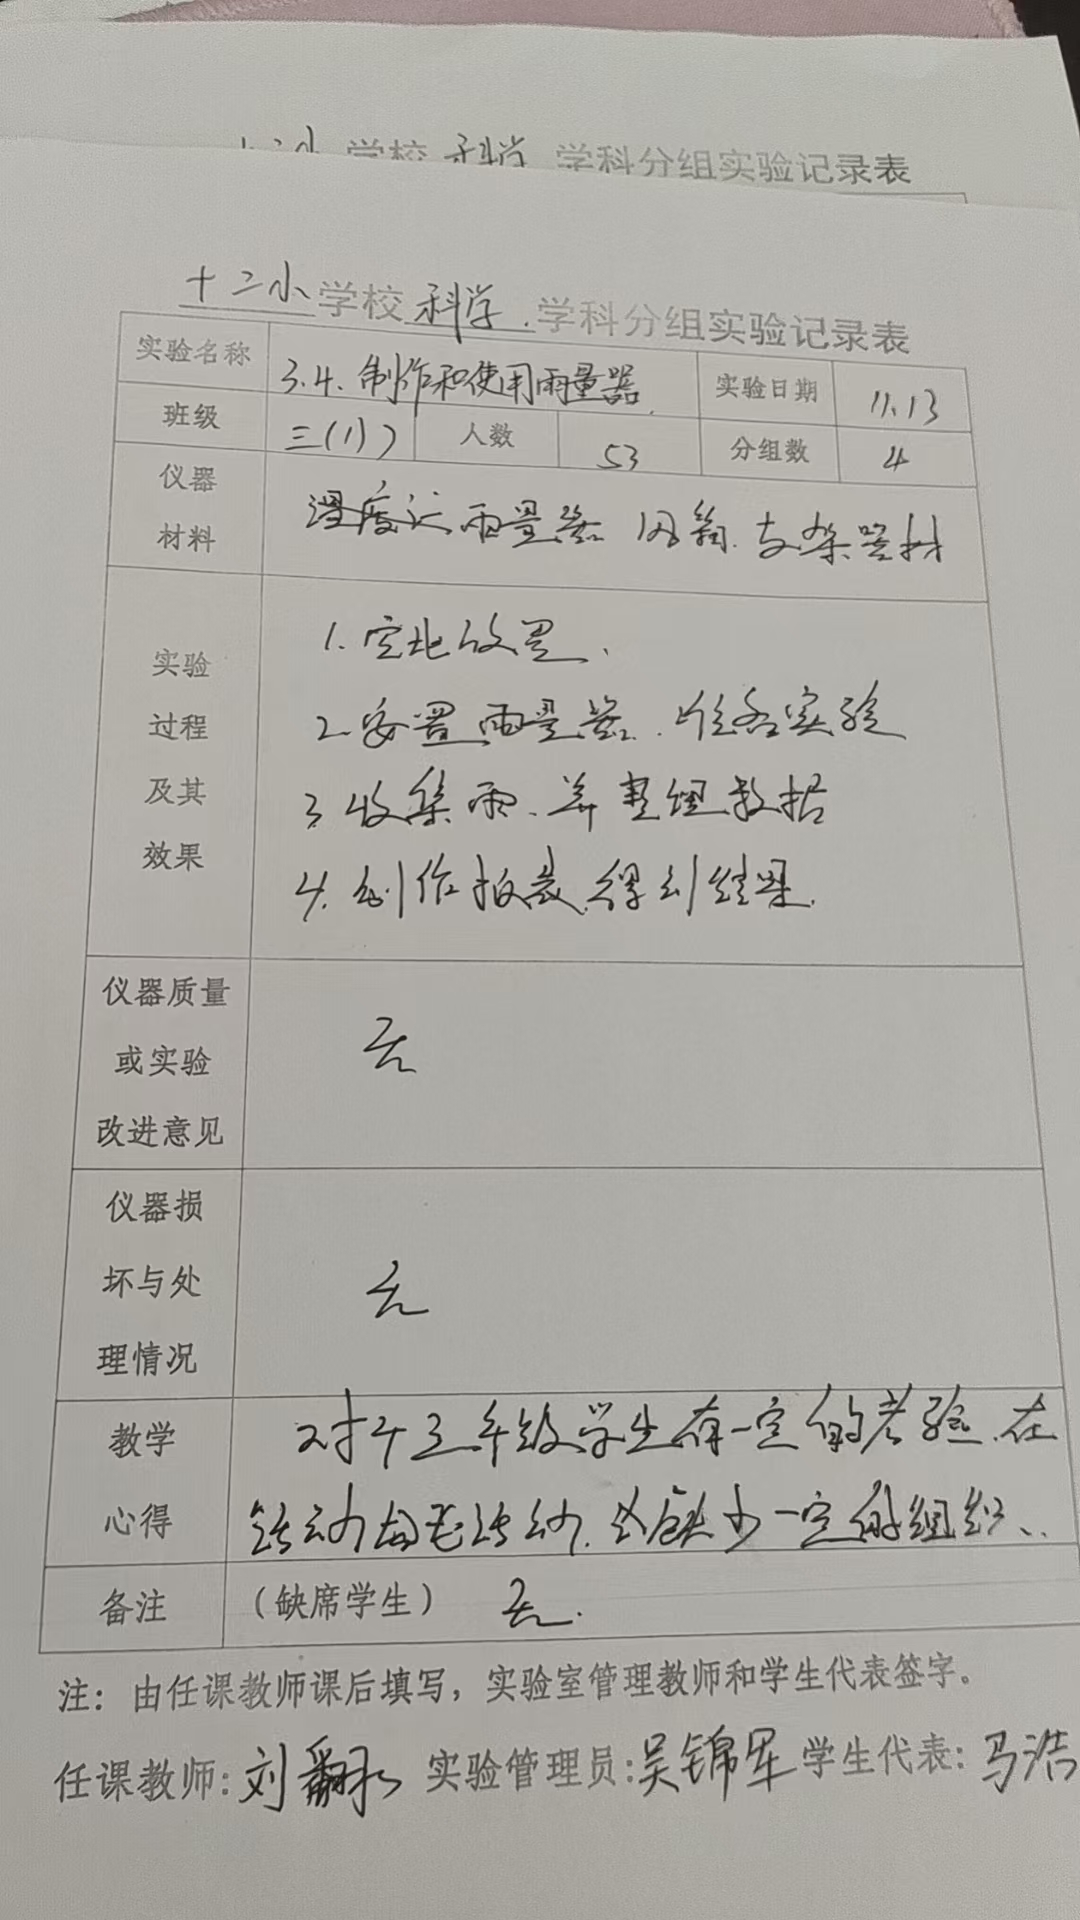 学校 科学 学科分组实验记录表
十二小学校科学.学科分组实验记录表
实验名称 3.4.制作和使用雨量器. 实验日期 11.13
班级 三(1)) 人数 53 分组数 4
仪器
材料
温度计 雨量器 风 支架等材
实验
过程
及其
效果
1.定地放置、
2.安置雨量器.准备实验
3收集雨、并整理数据
4.制作报表.得到结果.
仪器质量
或实验
改进意见
无
仪器损
坏与处
理情况
无
教学
心得
对于三年级学生有一定的考验.在
活动 缺少一定的组织..
备注 (缺席学生) 无.
注：由任课教师课后填写，实验室管理教师和学生代表签字。
任课教师:刘 实验管理员:吴锦军 学生代表:马浩